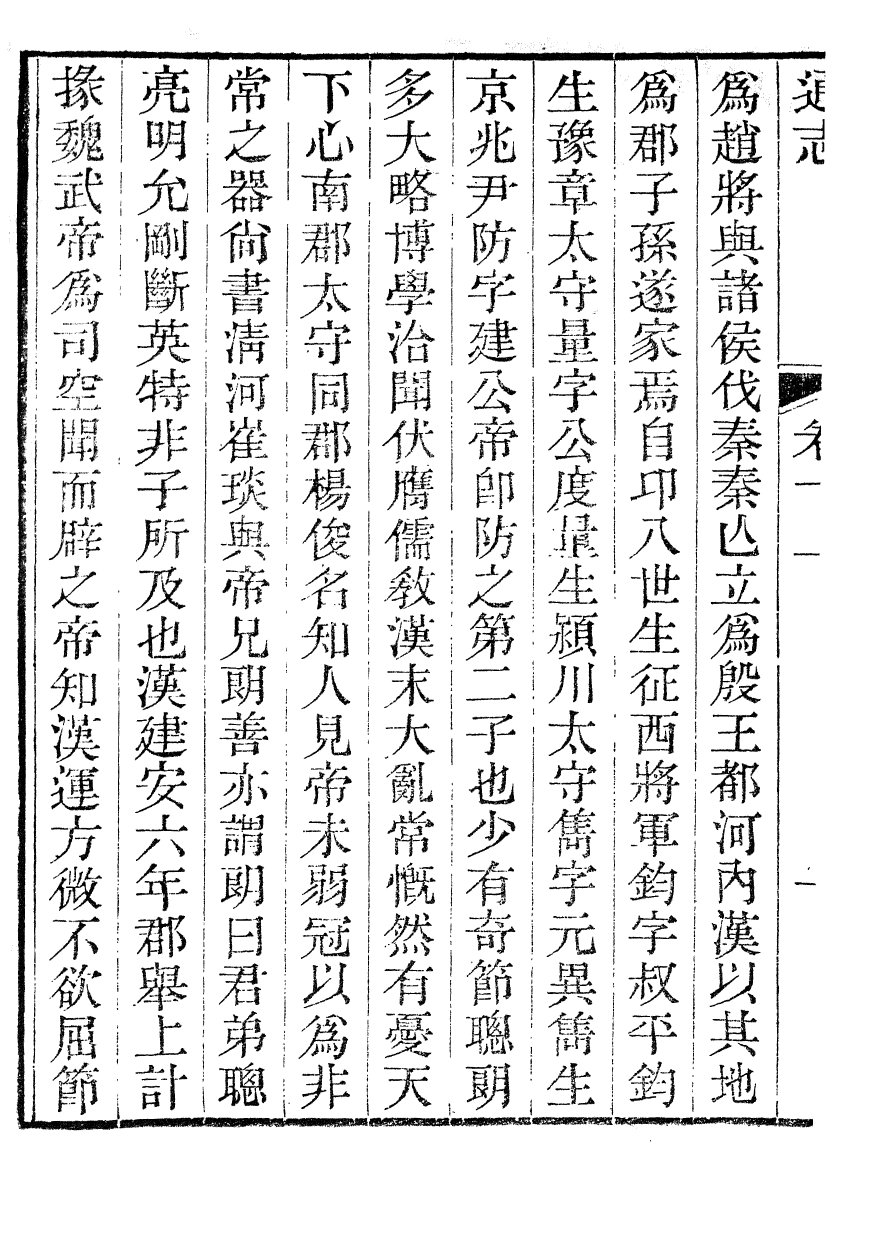 通志
卷一
一
爲趙將與諸侯伐秦秦亾立爲殷王都河內漢以其地
爲郡子孫遂家焉自卬八世生征西將軍鈞字叔平鈞
生豫章太守量字公度量生潁川太守雋字元異雋生
京兆尹防字建公帝卽防之第二子也少有奇節聰朗
多大略博學洽聞伏膺儒教漢末大亂常慨然有憂天
下心南郡太守同郡楊俊名知人見帝未弱冠以爲非
常之器尙書淸河崔琰與帝兄朗善亦謂朗曰君弟聰
亮明允剛斷英特非子所及也漢建安六年郡舉上計
掾魏武帝爲司空聞而辟之帝知漢運方微不欲屈節